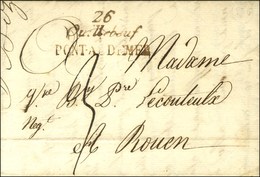 26
Quillebeuf
PONT-AUDEMER
Madame
Vve
Pre Lecouteulx
Negt
A Rouen